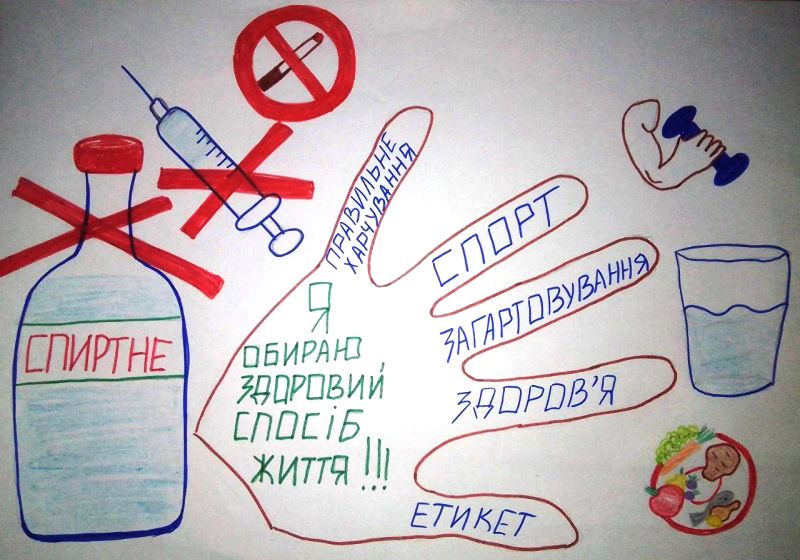 СПИРТНЕ
Я
ОБИРАЮ
ЗДОРОВИЙ
СПОСІБ
ЖИТТЯ!!!
ПРАВИЛЬНЕ
ХАРЧУВАННЯ
СПОРТ
ЗАГАРТОВУВАННЯ
ЗДОРОВ'Я
ЕТИКЕТ